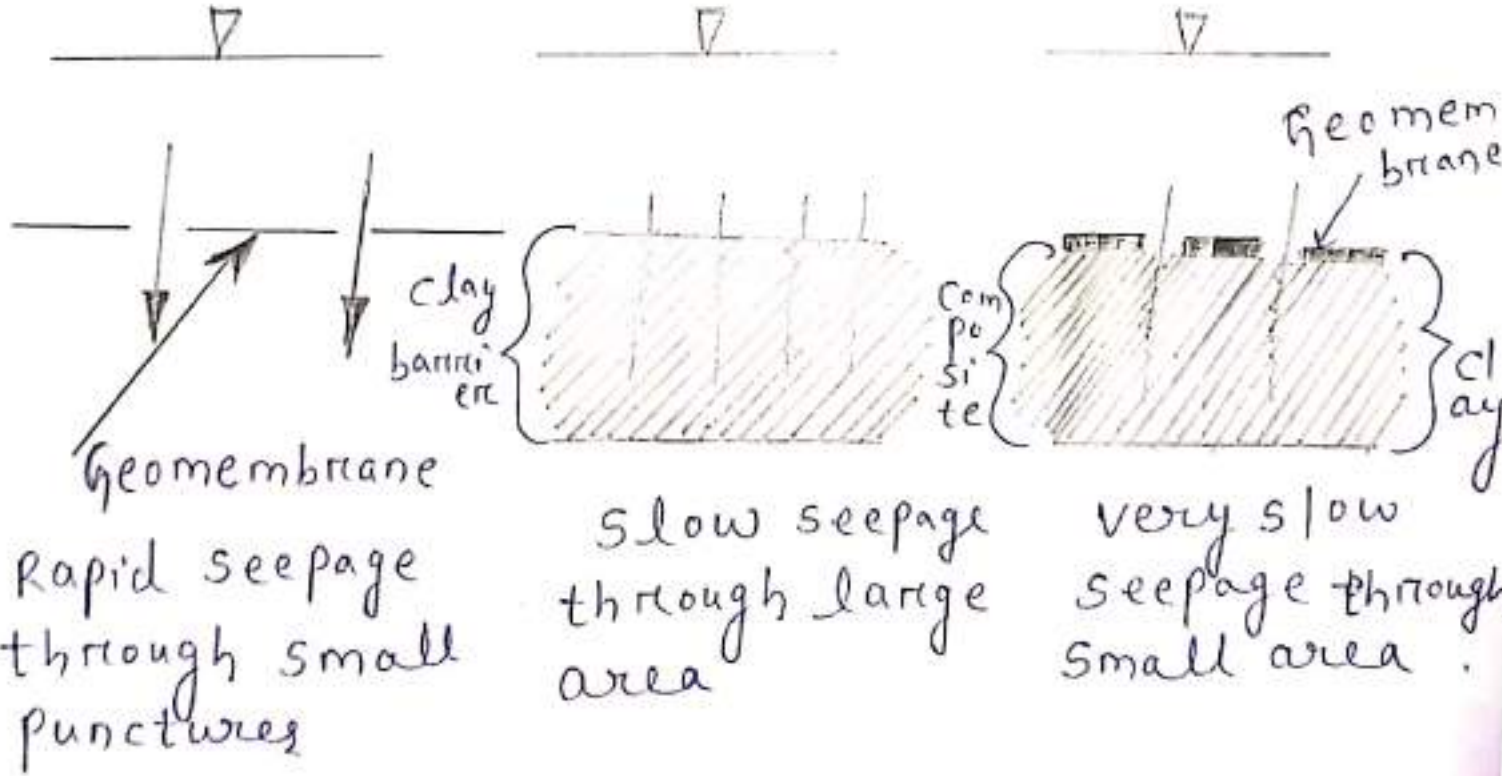 Geomembrane
Rapid seepage
through small
punctures
clay
barri
er
slow seepage
through large
area
Geomem
brane
com
po
si
te
cl
ay
very slow
seepage through
small area .